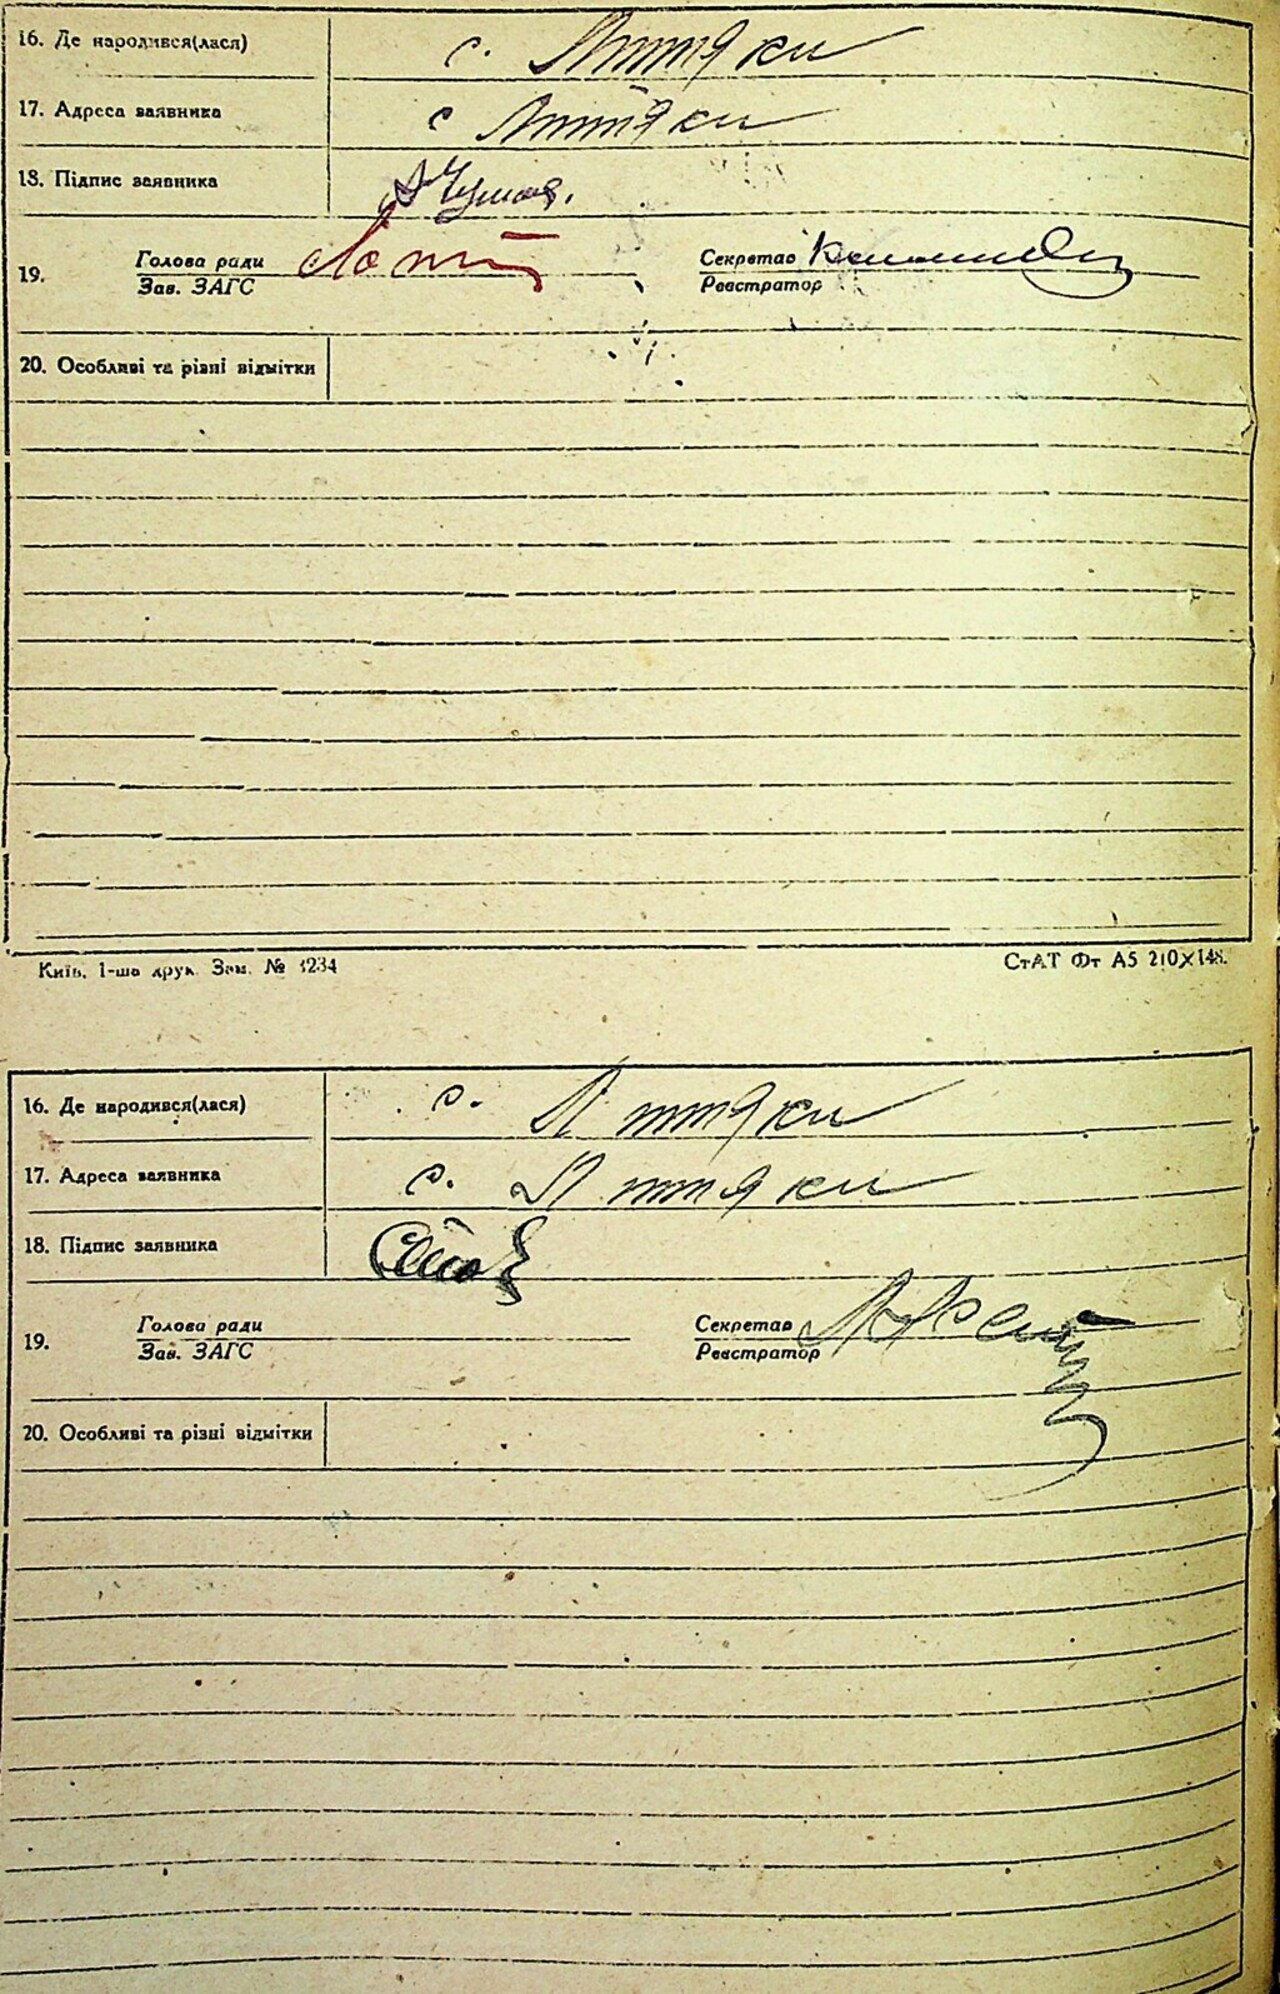 16. Де народився(лася) с. Литяки
17. Адреса заявника с Литяки
18. Підпис заявника
19. Голова ради Секретар
Зав. ЗАГС Реєстратор
20. Особливі та різні відмітки
Київ. 1-ша друк. Зам. № 3234 СтАТ Фт А5 210×148.
16. Де народився(лася) с. Литяки
17. Адреса заявника с. Литяки
18. Підпис заявника
19. Голова ради Секретар
Зав. ЗАГС Реєстратор
20. Особливі та різні відмітки